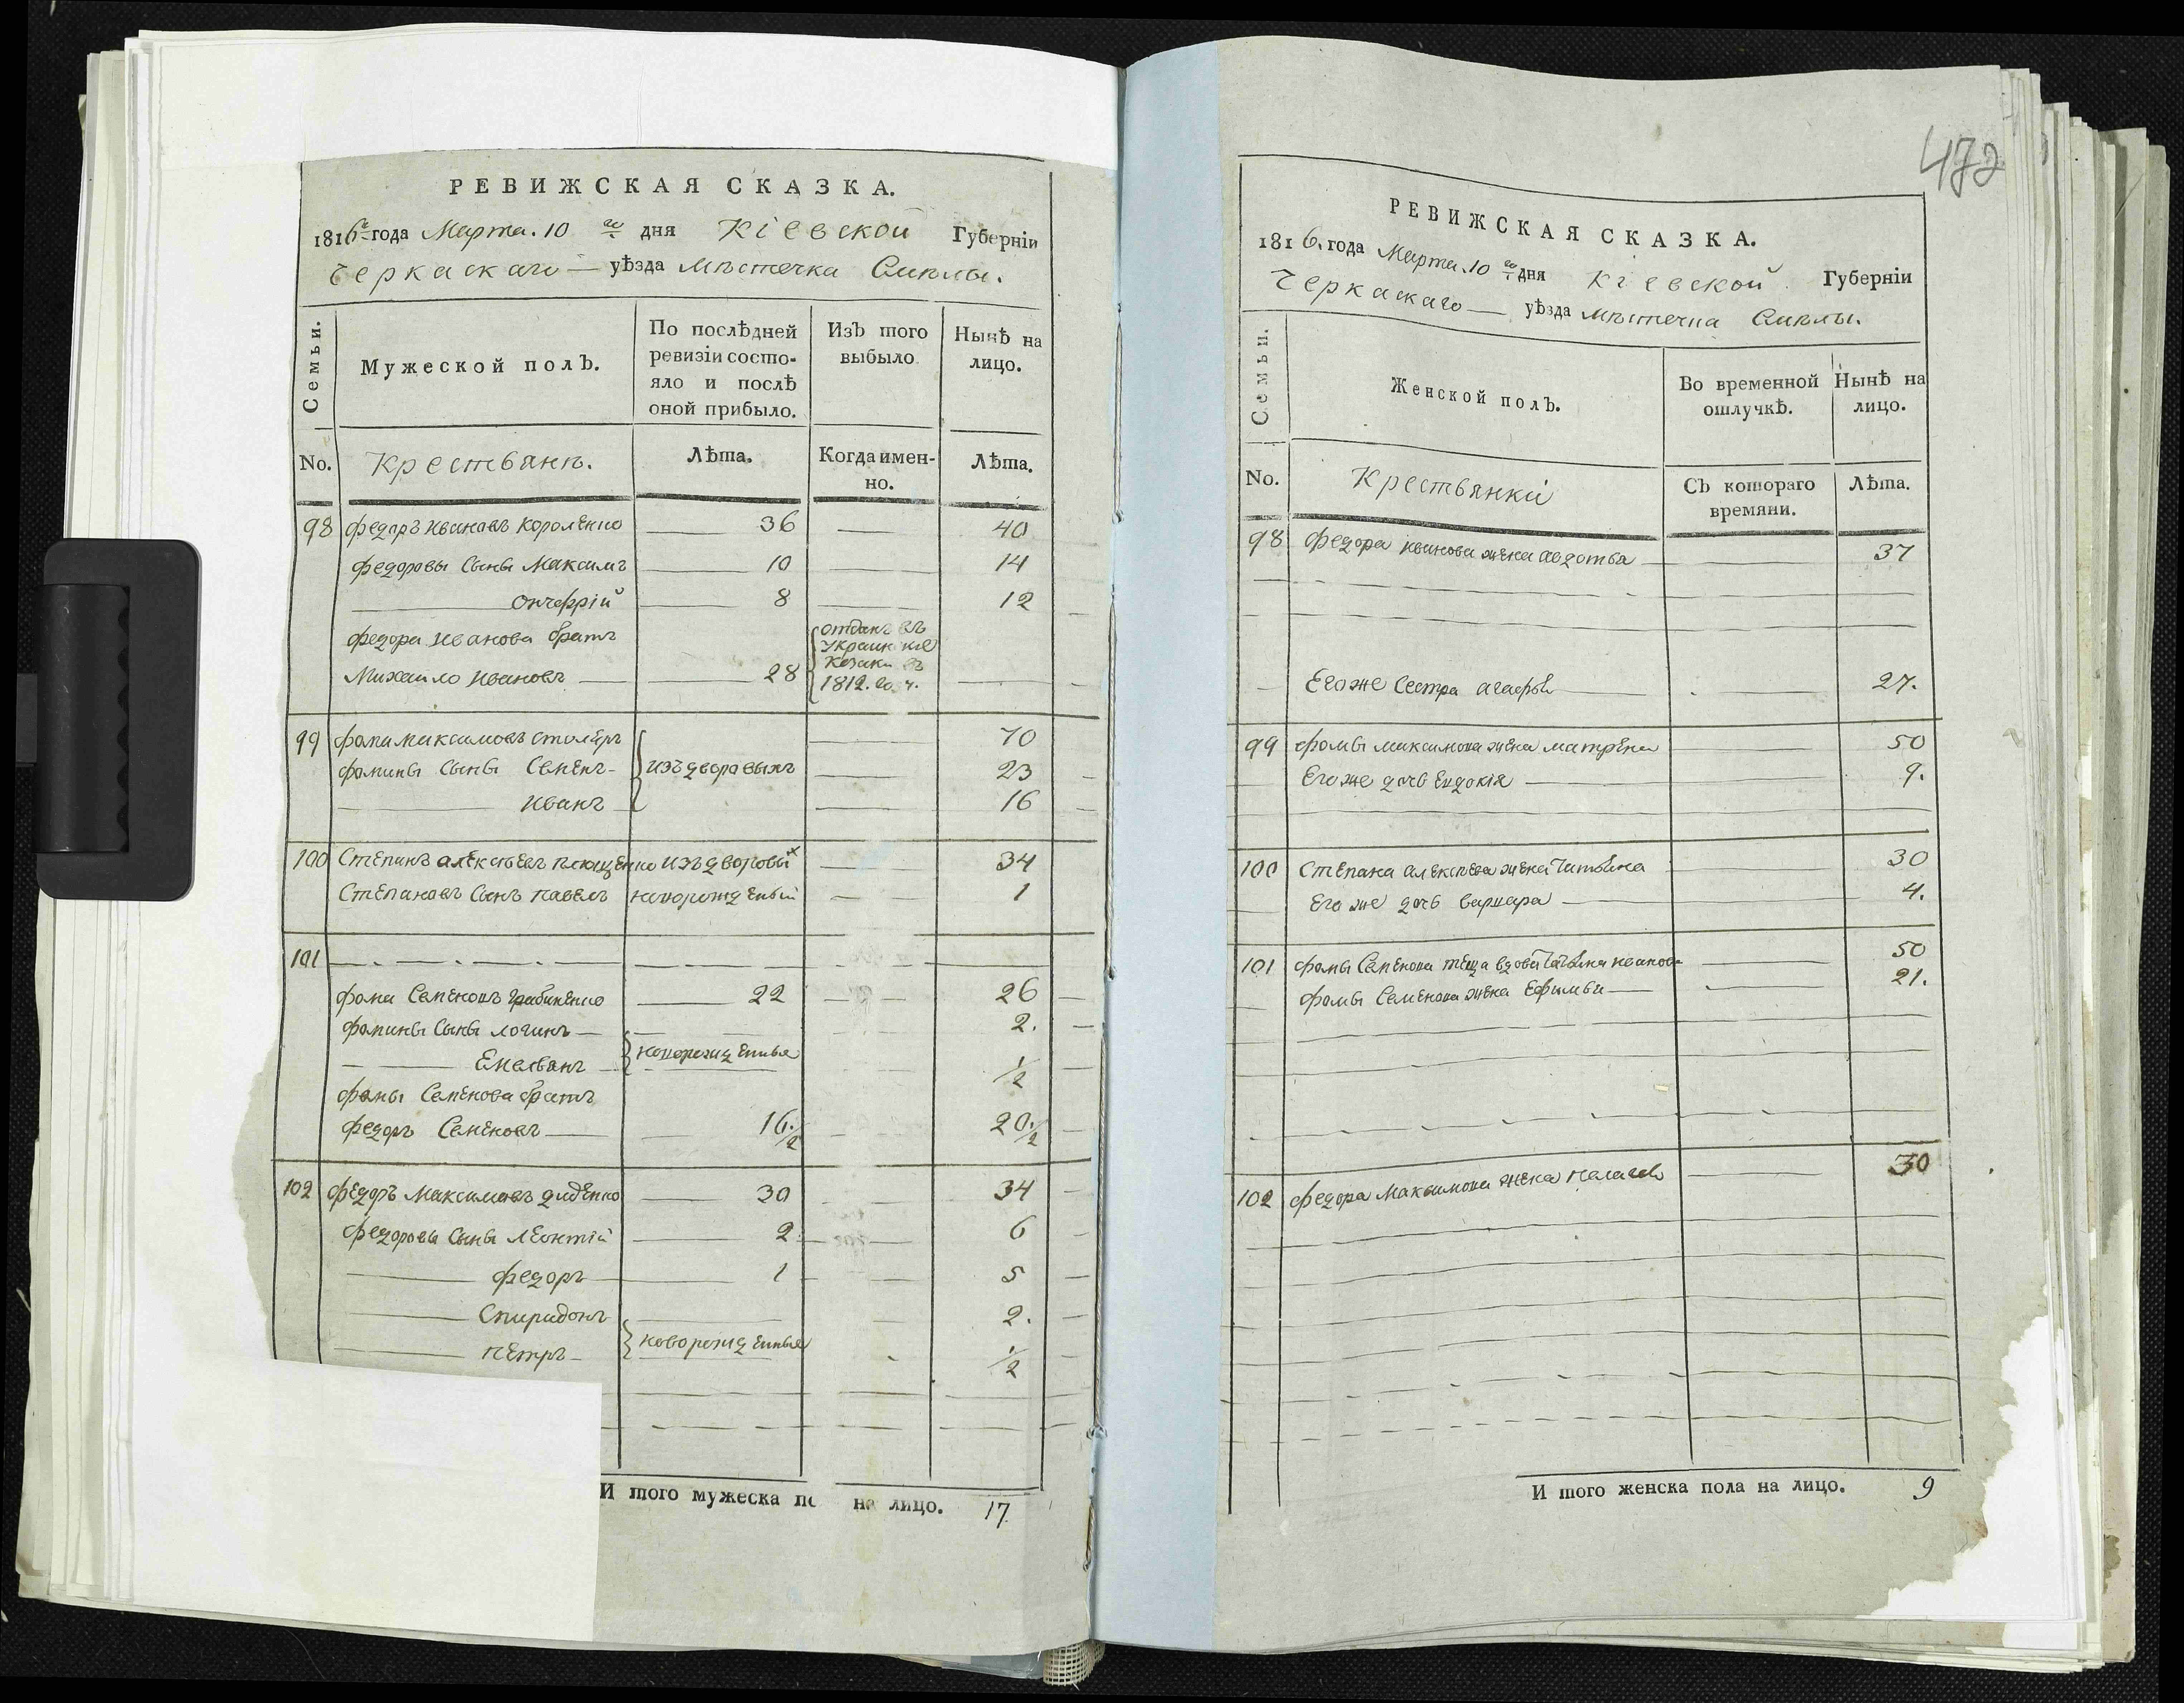 РЕВИЖСКАЯ СКАЗКА.
1816го года Марта. 10 го дня Кіевской Губерніи
Черкаскаго — уѣзда мѣстечка Смѣлы.
Семьи.
Мужеской полъ.
По послѣдней ревизіи состо-
яло и послѣ
оной прибыло.
Изъ того
выбыло.
Нынѣ на
лицо.
No.
Крестьянѣ.
Лѣта.
Когда имен-
но.
Лѣта.
98 федоръ Ивановъ Короленко — 36 — 40
федоровы Сыны Максимъ — 10 — 14
— Онуфрій — 8 — 12
федора Иванова братъ
Михайло Ивановъ — 28
отданъ въ
Украинскіе
Козаки въ
1812. году.
99 фома Максимовъ столяръ — 70
фомины Сыны Семенъ — изъ дворовыхъ — 23
— Иванъ — 16
100 Степанъ алексѣевъ изъ дворовыхъ — 34
Степановъ Сынъ павелъ новорожденый — 1
101
фома Семеновъ — 22 — 26
фомины Сыны логинъ — 2.
— Емельянъ новорожденые 1/2
фомы Семенова братъ
федоръ Семеновъ — 16.1/2 20.1/2
102 федоръ Максимовъ диденко — 30 — 34
федоровы Сыны леонтій — 2 — 6
— федоръ — 1 — 5
— Спиридонъ — 2.
— петръ — новорожденые 1/2
И того мужеска по на лицо. 17
472
РЕВИЖСКАЯ СКАЗКА.
1816. года Марта. 10 го дня Кіевской Губерніи
Черкаскаго — уѣзда мѣстечка Смѣлы.
Семьи.
Женской полъ.
Во временной
отлучкѣ.
Нынѣ на
лицо.
No.
Крестьянки
Съ котораго
времяни.
Лѣта.
98 федора иванова жена авдотья — 37
Егоже Сестра агафья — 27.
99 фомы максимова жена матрена — 50
Егоже дочь Евдокія — 9.
100 Степана алексѣева жена Татьяна — 30
Егоже дочь варвара — 4.
101 фомы Семенова теща вдова Татьяна иванова — 50
фомы Семенова жена Ефимья — 21.
102 федора Максимова жена пелагея — 30
И того женска пола на лицо. 9